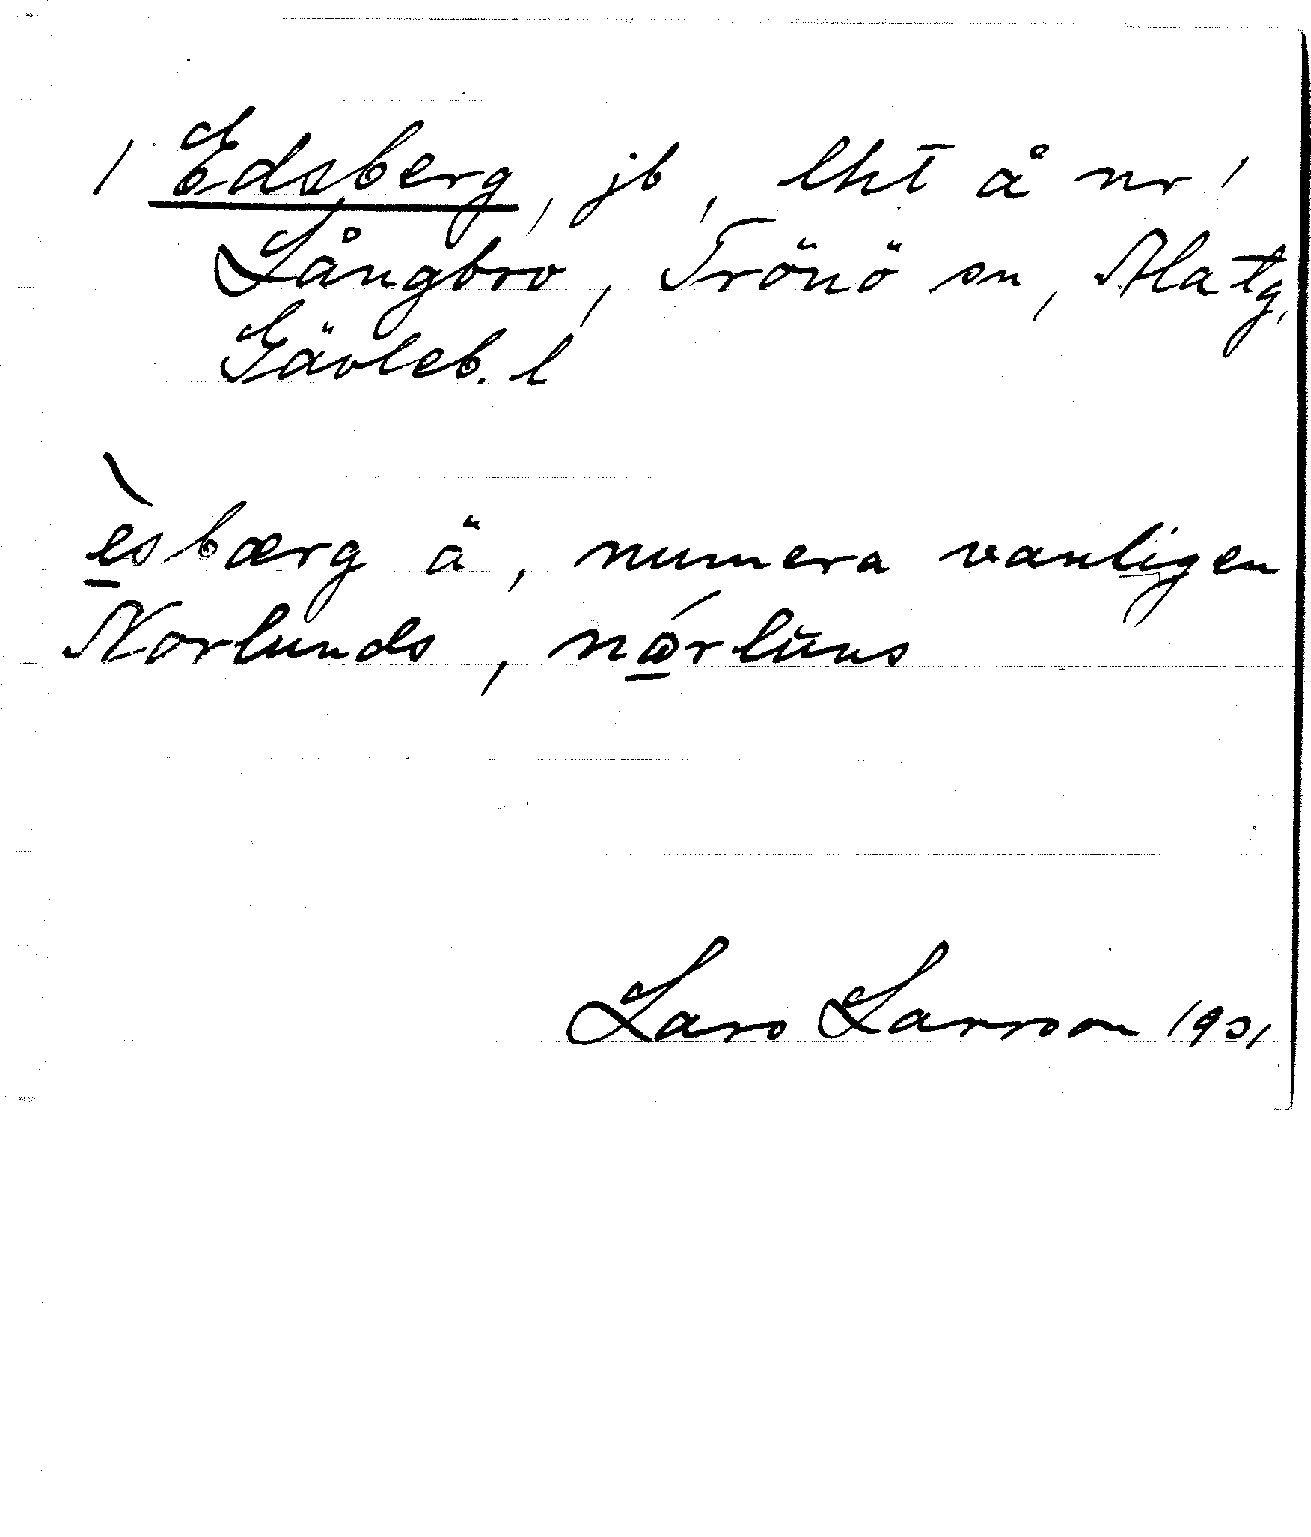 1 Edsberg, jb, lht å nr 1
Långbro, Trönö sn, Ala tg,
Gävleb. l
èsbærg ä, numera vanligen
Norlunds, nórluns
Lars Larsson 1931